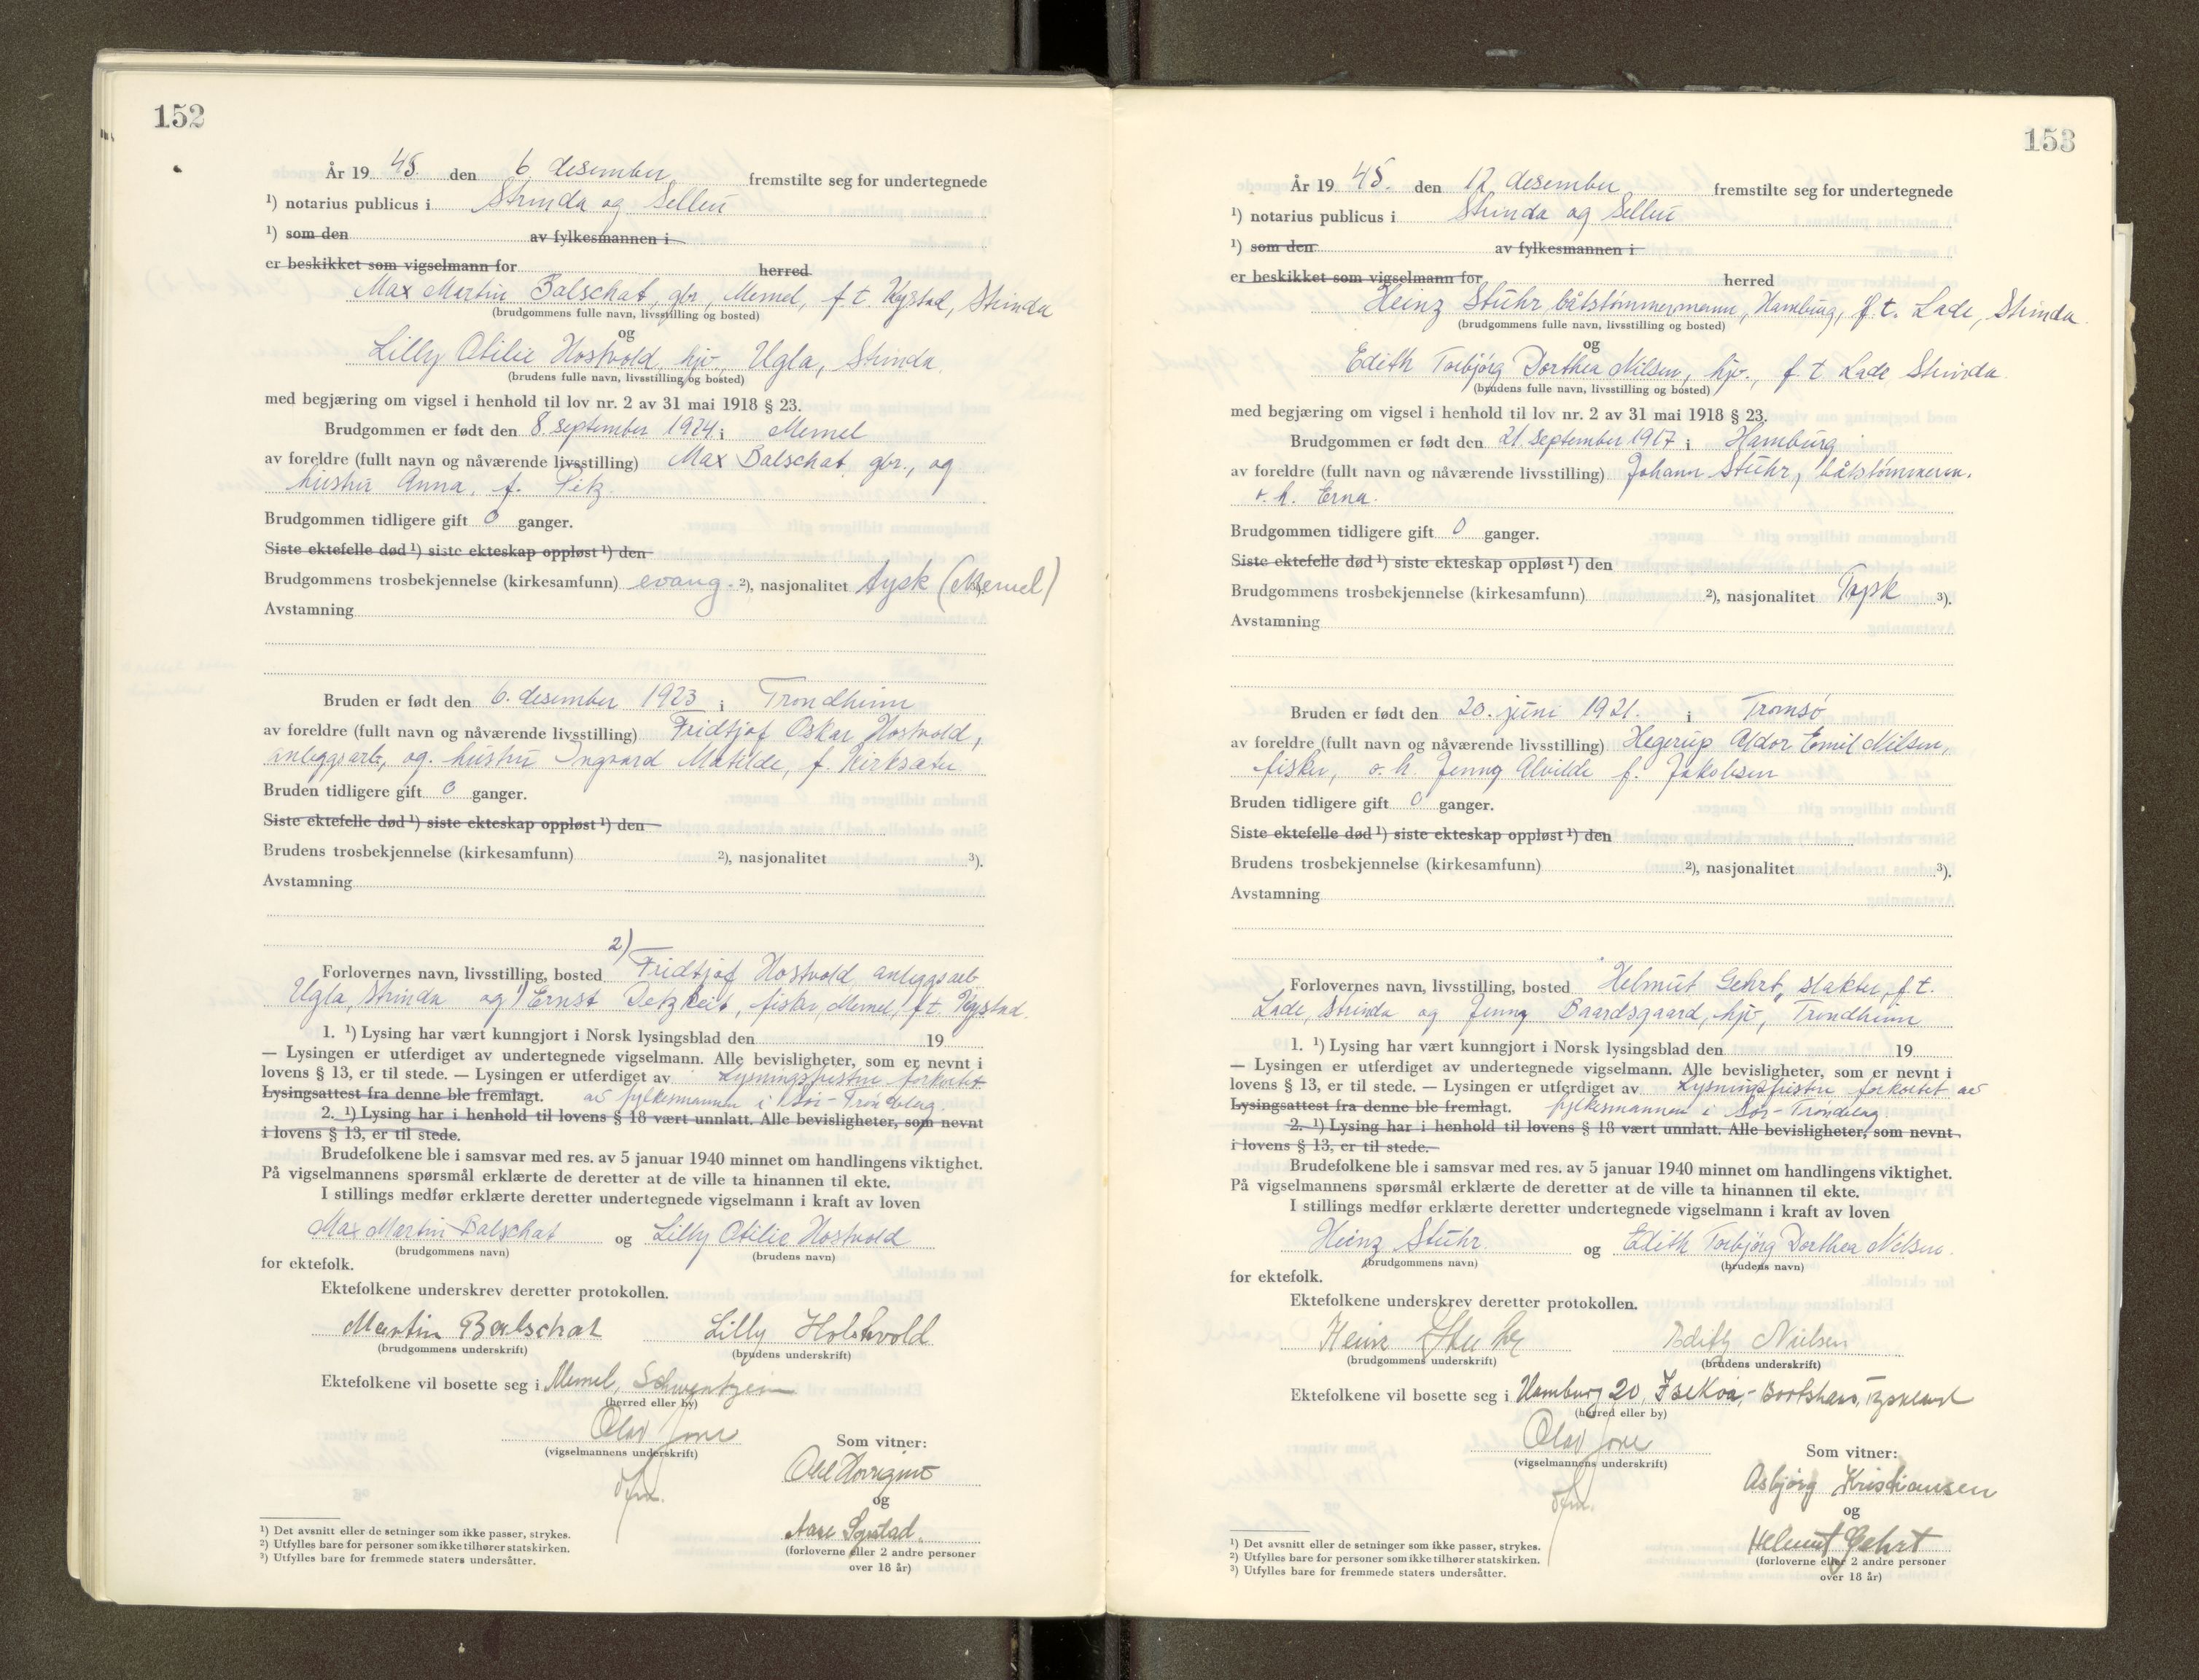 152
År 19 45. den 6. desember fremstilte seg for undertegnede
¹) notarius publicus i Strinda og Selbu
¹) som den av fylkesmannen i
er beskikket som vigselmann for herred
Max Martin Balschat, gbr., Memel, f. t. Kystad, Strinda
(brudgommens fulle navn, livsstilling og bosted)
og
Lilly Otilie Hostvold, hjv., Ugla, Strinda.
(brudens fulle navn, livsstilling og bosted)
med begjæring om vigsel i henhold til lov nr. 2 av 31 mai 1918 § 23.
Brudgommen er født den 8. september 1924 i Memel
av foreldre (fullt navn og nåværende livsstilling) Max Balschat, gbr., og
hustru Anna, f. Pitz.
Brudgommen tidligere gift 0 ganger.
Siste ektefelle død ¹) siste ekteskap oppløst ¹) den
Brudgommens trosbekjennelse (kirkesamfunn) evang. ²), nasjonalitet tysk (Memel)
Avstamning
Bruden er født den 6. desember 1923 i Trondheim
av foreldre (fullt navn og nåværende livsstilling) Fridtjof Oskar Hostvold,
anleggsarb., og hustru Ingvard Matilde, f. Kirksæter
Bruden tidligere gift 0 ganger.
Siste ektefelle død ¹) siste ekteskap oppløst ¹) den
Brudens trosbekjennelse (kirkesamfunn) ²), nasjonalitet ³).
Avstamning
2)
Forlovernes navn, livsstilling, bosted Fridtjof Hostvold anleggsarb.
Ugla, Strinda og 1) Ernst Detzkeit, fisker, Memel, f.t. Kystad.
1. ¹) Lysing har vært kunngjort i Norsk lysingsblad den 19
— Lysingen er utferdiget av undertegnede vigselmann. Alle bevisligheter, som er nevnt i
lovens § 13, er til stede. — Lysingen er utferdiget av Lysningsfristen forkortet
Lysingsattest fra denne ble fremlagt. av fylkesmannen i Sør-Trøndelag.
2. ¹) Lysing har i henhold til lovens § 18 vært unnlatt. Alle bevisligheter, som nevnt
i lovens § 13, er til stede.
Brudefolkene ble i samsvar med res. av 5 januar 1940 minnet om handlingens viktighet.
På vigselmannens spørsmål erklærte de deretter at de ville ta hinannen til ekte.
I stillings medfør erklærte deretter undertegnede vigselmann i kraft av loven
Max Martin Balschat og Lilly Otilie Hostvold
(brudgommens navn) (brudens navn)
for ektefolk.
Ektefolkene underskrev deretter protokollen.
Martin Balschat Lilly Hostvold
(brudgommens underskrift) (brudens underskrift)
Ektefolkene vil bosette seg i Memel,
(herred eller by)
Olav Jore
(vigselmannens underskrift)
Som vitner:
og
(forloverne eller 2 andre personer
over 18 år)
¹) Det avsnitt eller de setninger som ikke passer, strykes.
²) Utfylles bare for personer som ikke tilhører statskirken.
³) Utfylles bare for fremmede staters undersåtter.
153
År 19 45. den 12. desember fremstilte seg for undertegnede
¹) notarius publicus i Strinda og Selbu
¹) som den av fylkesmannen i
er beskikket som vigselmann for herred
Heinz Stuhr, båtstømmermann, Hamburg, f. t. Lade, Strinda
(brudgommens fulle navn, livsstilling og bosted)
og
Edith Torbjørg Dorthea Nilsen, hjv., f. t. Lade, Strinda
(brudens fulle navn, livsstilling og bosted)
med begjæring om vigsel i henhold til lov nr. 2 av 31 mai 1918 § 23.
Brudgommen er født den 21. september 1917 i Hamburg
av foreldre (fullt navn og nåværende livsstilling) Johann Stuhr, båtstømmerm.
o. h. Erna.
Brudgommen tidligere gift 0 ganger.
Siste ektefelle død ¹) siste ekteskap oppløst ¹) den
Brudgommens trosbekjennelse (kirkesamfunn) ²), nasjonalitet Tysk ³).
Avstamning
Bruden er født den 20. juni 1921. i Tromsø
av foreldre (fullt navn og nåværende livsstilling) Hegerup Aldor Emil Nilsen,
fisker, o. h. Jenny Alvilde f. Jakobsen
Bruden tidligere gift 0 ganger.
Siste ektefelle død ¹) siste ekteskap oppløst ¹) den
Brudens trosbekjennelse (kirkesamfunn) ²), nasjonalitet ³).
Avstamning
Forlovernes navn, livsstilling, bosted Helmut Gehrt, slakter, f.t.
Lade, Strinda og Jenny Baardsgaard, hjv, Trondheim
1. ¹) Lysing har vært kunngjort i Norsk lysingsblad den 19
— Lysingen er utferdiget av undertegnede vigselmann. Alle bevisligheter, som er nevnt i
lovens § 13, er til stede. — Lysingen er utferdiget av Lysningsfristen forkortet av
Lysingsattest fra denne ble fremlagt. fylkesmannen i Sør-Trøndelag.
2. ¹) Lysing har i henhold til lovens § 18 vært unnlatt. Alle bevisligheter, som nevnt
i lovens § 13, er til stede.
Brudefolkene ble i samsvar med res. av 5 januar 1940 minnet om handlingens viktighet.
På vigselmannens spørsmål erklærte de deretter at de ville ta hinannen til ekte.
I stillings medfør erklærte deretter undertegnede vigselmann i kraft av loven
Heinz Stuhr. og Edith Torbjørg Dorthea Nilsen.
(brudgommens navn) (brudens navn)
for ektefolk.
Ektefolkene underskrev deretter protokollen.
Heinz Stuhr Edith Nielsen
(brudgommens underskrift) (brudens underskrift)
Ektefolkene vil bosette seg i Hamburg 20, Tyskland
(herred eller by)
Olav Jore
(vigselmannens underskrift)
Som vitner:
Asbjørg Kristiansen
og
Helmut Gehrt
(forloverne eller 2 andre personer
over 18 år)
¹) Det avsnitt eller de setninger som ikke passer, strykes.
²) Utfylles bare for personer som ikke tilhører statskirken.
³) Utfylles bare for fremmede staters undersåtter.